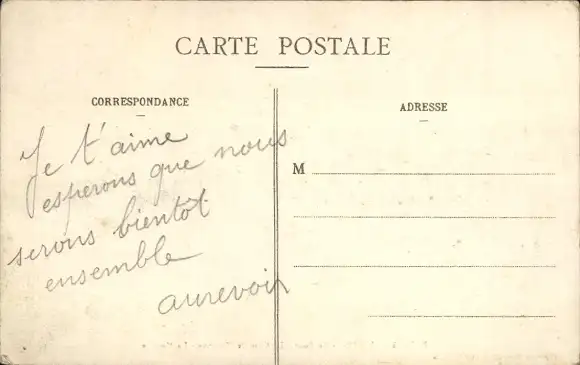 CARTE POSTALE
CORRESPONDANCE
Je t'aime
esperons que nous
serons bientôt
ensemble
aurevoir
ADRESSE
M